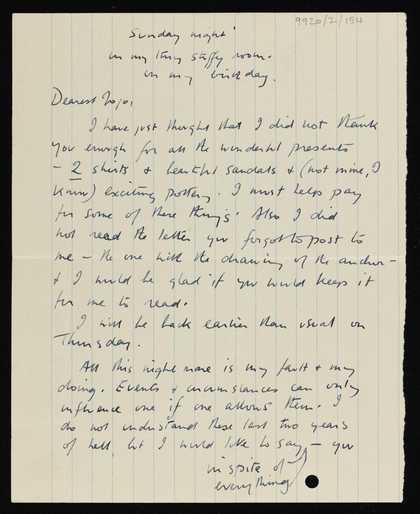 9920/2/154
Sunday night
in my tiny stuffy room.
on my birthday.
Dearest Jojo,
I have just thought that I did not thank
you enough for all the wonderful presents
– 2 shirts & beautiful sandals & (not mine, I
know) exciting pottery. I must help pay
for some of these things. Also I did
not read the letter you forgot to post to
me – the one with the drawing of the anchor –
& I would be glad if you would keep it
for me to read.
I will be back earlier than usual on
Thursday.
All this nightmare is my fault & my
doing. Events & circumstances can only
influence one if one allows them. I
do not understand these last two years
of hell, but I would like to say – you
in spite of
everything